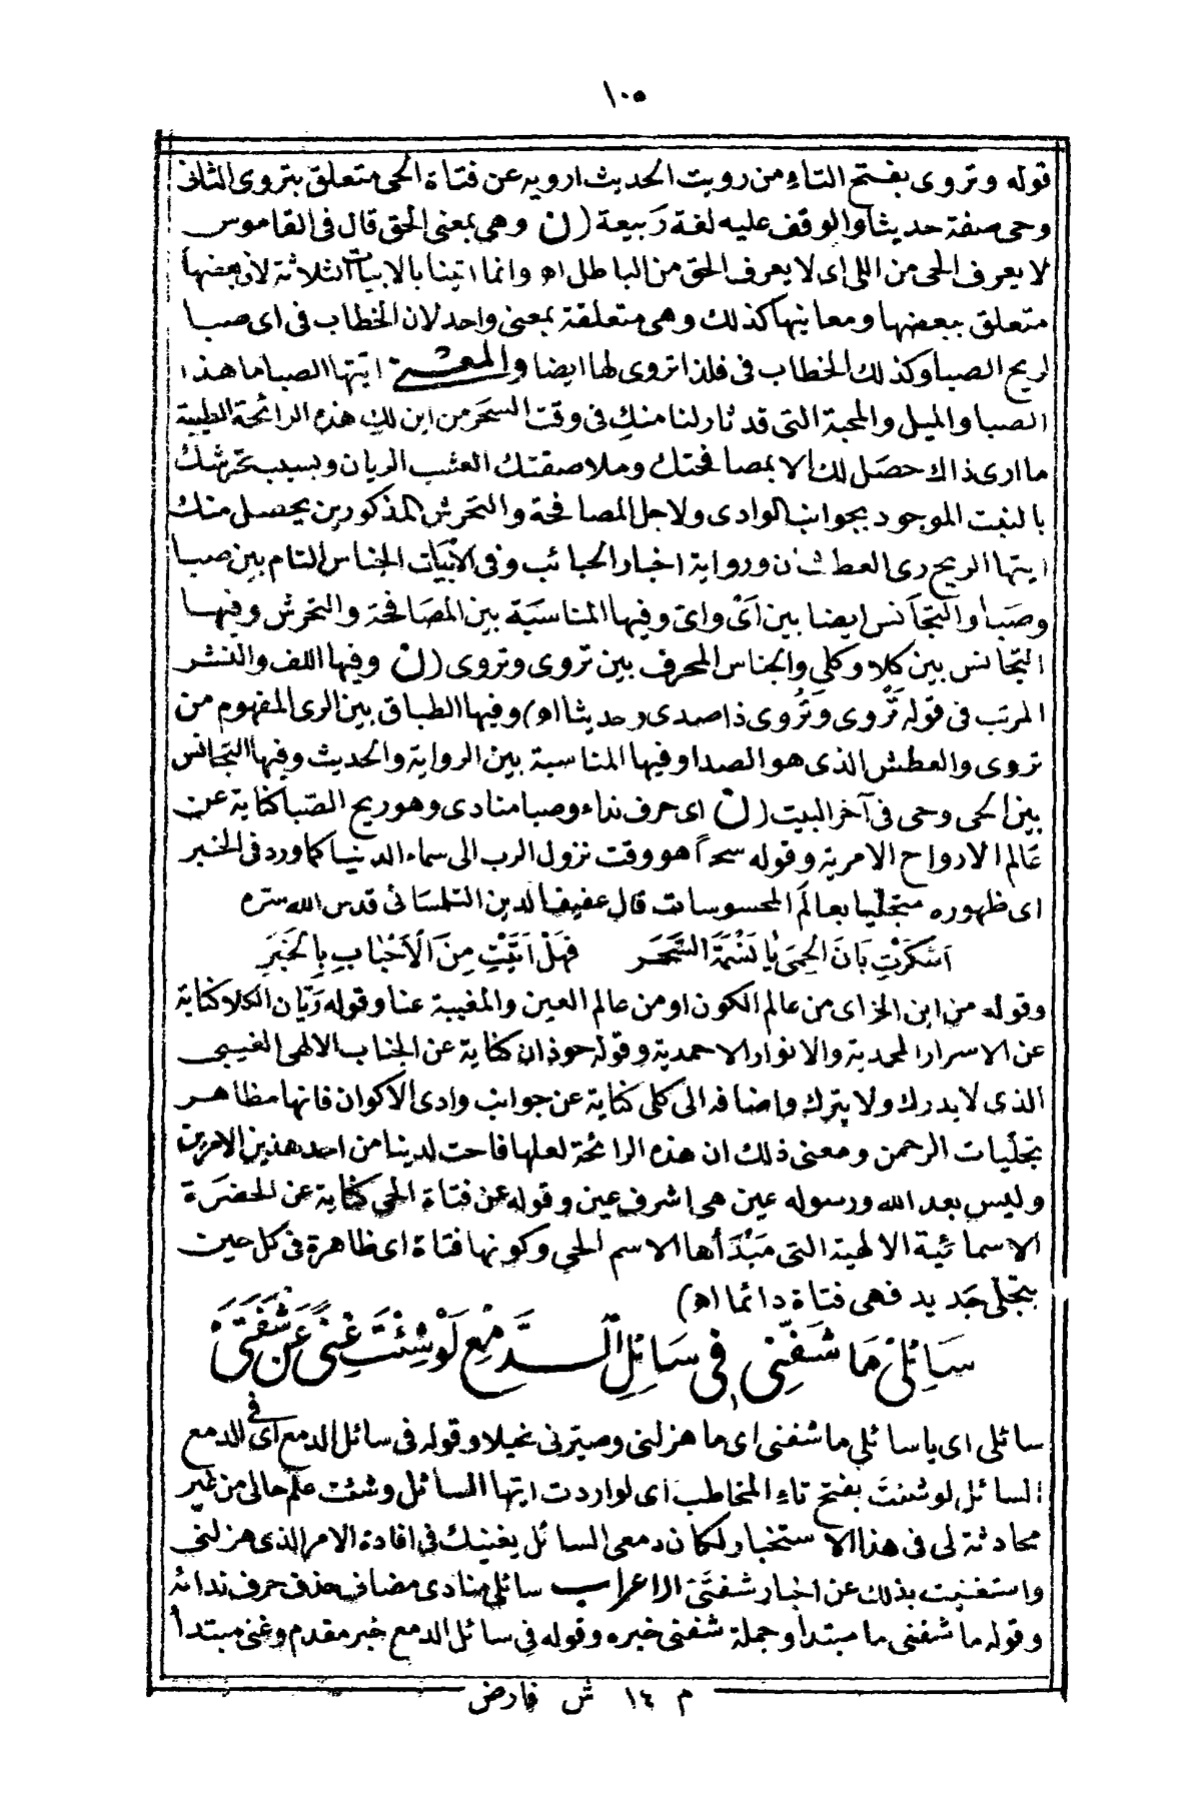 ١٠٥
قوله وتروى بفتح التاء من رويت الحديث ارويه عن فتاة الحى متعلق بتروى الثانى
وحى صفة حديثا والوقف عليه لغة رَبيعة (ن وهى بمعنى الحق قال فى القاموس
لا يعرف الحى من اللى اى لا يعرف الحق من الباطل اه وانما اتينا بالابيات الثلاثة لان بعضها
متعلق ببعضها ومعانيها كذلك وهى متعلقة بمعنى واحد لان الخطاب فى اى صبا
لريح الصبا وكذلك الخطاب فى فلذا تروى لها ايضا والمعنى ايتها الصبا ما هذا
الصبا والميل والمحبة التى قد ثار لنا منكِ فى وقت السحَر من اين لكِ هذه الرائحة الطيبة
ما ارى ذاك حصَل لك الا بمصافحتك وملاصقتك العشب الريان وبسبب تحرشك
بالنبت الموجود بجوانب الوادى ولاجل المصافحة والتحرش المذكورين يحصل منك
ايتها الريح رى العطشان ورواية اخبار الحبائب وفى الأبيَات الجناس التام بين صبا
وصَبا والتجَانس ايضا بين اَىْ واىّ وفيها المناسَبَة بين المصَافحة والتحرش وفيها
التجانس بين كلا وكلى والجناس المحرف بين تروى وتروى (ن وفيها اللف والنشر
المرتب فى قوله تَرْوى وَتُروى ذا صدى (حديثا اه) وفيها الطباق بين الرى المفهوم من
تروى والعطش الذى هو الصدا وفيها المناسبة بين الرواية والحديث وفيها التجانس
بين الحى وحى فى آخر البيت (ن اى حرف نداء وصبا منادى وهو ريح الصّبا كناية عن
عَالم الارواح الامرية وقوله سحرًا هو وقت نزول الرب الى سماء الدنيا كما ورد فى الخبر
اى ظهوره متجليا بعالَم المحسوسات قال عفيف الدين التلمسَانى قدس الله سرّه
اَسْكَرْتِ بَانَ الْحِمَى يَا نَسْمَةَ السَّحَر فَهَلْ اَتَيْتِ مِنَ الْاَحْبَابِ بِالْخَبَرِ
وقوله من اين الخ اى من عالم الكون او من عالم العين والمغيبة عنا وقوله رَيّان الكلا كناية
عن الاسرار المحمدية والانوار الاحمدية وقوله حوذان كناية عن الجناب الالهى الغيبى
الذى لا يدرك ولا يترك واضافه الى كلى كناية عن جوانب وادى الاكوان فانها مظاهر
تجليات الرحمن ومعنى ذلك ان هذه الرائحة لعلها فاحت لدينا من احد هذين الامرين
وليس بعد الله ورسوله عين هى اشرف عين وقوله عن فتاة الحى كناية عن الحضرَة
الاسمائية الالهية التى مَبْدَأها الاسم الحي وكونها فتاة اى ظاهرة فى كل حين
بتجلى جَديد فهى فتاة دائما اه)
سَائِلِىْ مَا شَفَّنِى فِى سَائِلِ الـدَّمْعِ لَوْ شِئْتَ غِنًى عَنْ شَفَتَىَّ
سائلى اى يا سائلي ما شفنى اى ما هزلنى وصيّرنى نحيلا وقوله فى سائل الدمع اى فى الدمع
السائل لو شئتَ بفتح تاء المخاطب اى لو اردت ايتها السائل وشئت علم حالى من غير
محادثة لى فى هذا الاستخبار لكان دمعى السائل يغنيك فى افادة الامر الذى هزلنى
واستغنيت بذلك عن اخبار شفتَىَّ الاعراب سائلى منادى مضاف حذف حرف ندائه
وقوله ما شفنى ما مبتدأ وجملة شفنى خبره وقوله فى سائل الدمع خبر مقدم وغنى مبتدأ
م ١٤ ش فارض